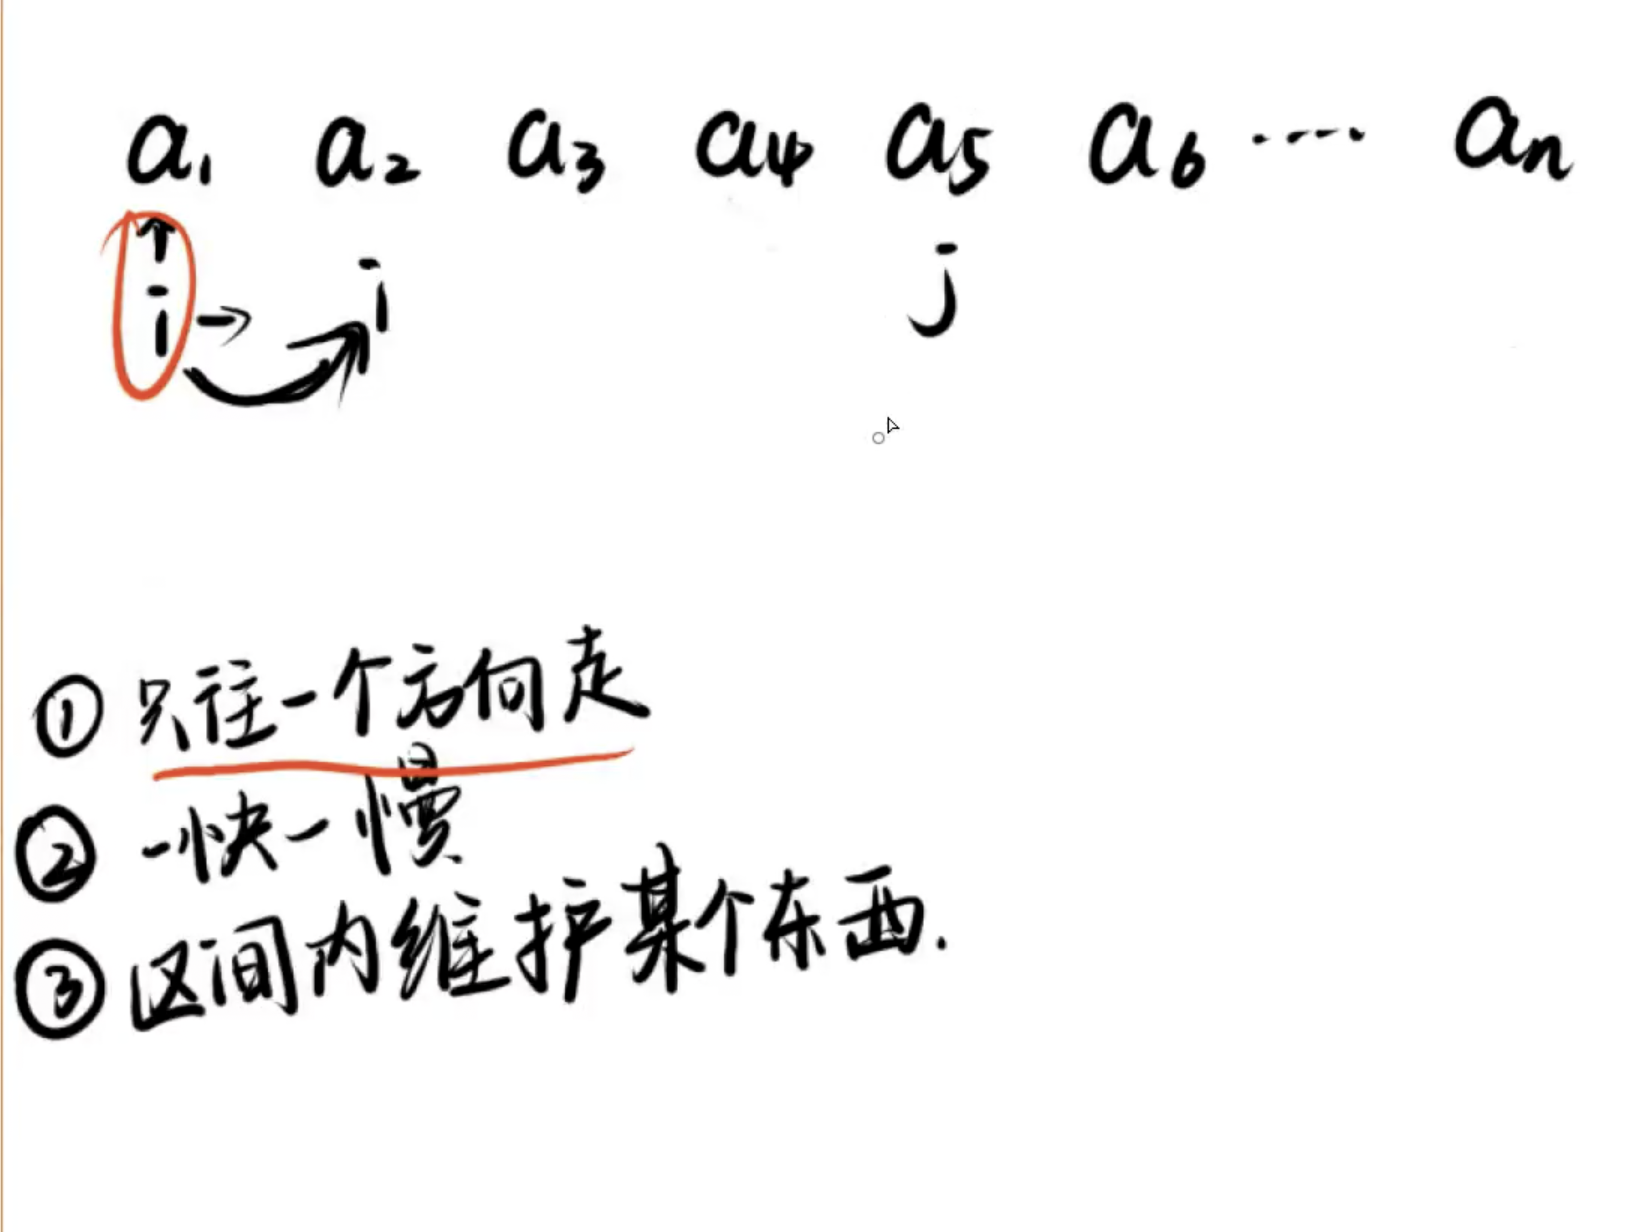 a₁ a₂ a₃ a₄ a₅ a₆ ···· aₙ
i i j
① 只往一个方向走
② 一快一慢
③ 区间内维护某个东西.